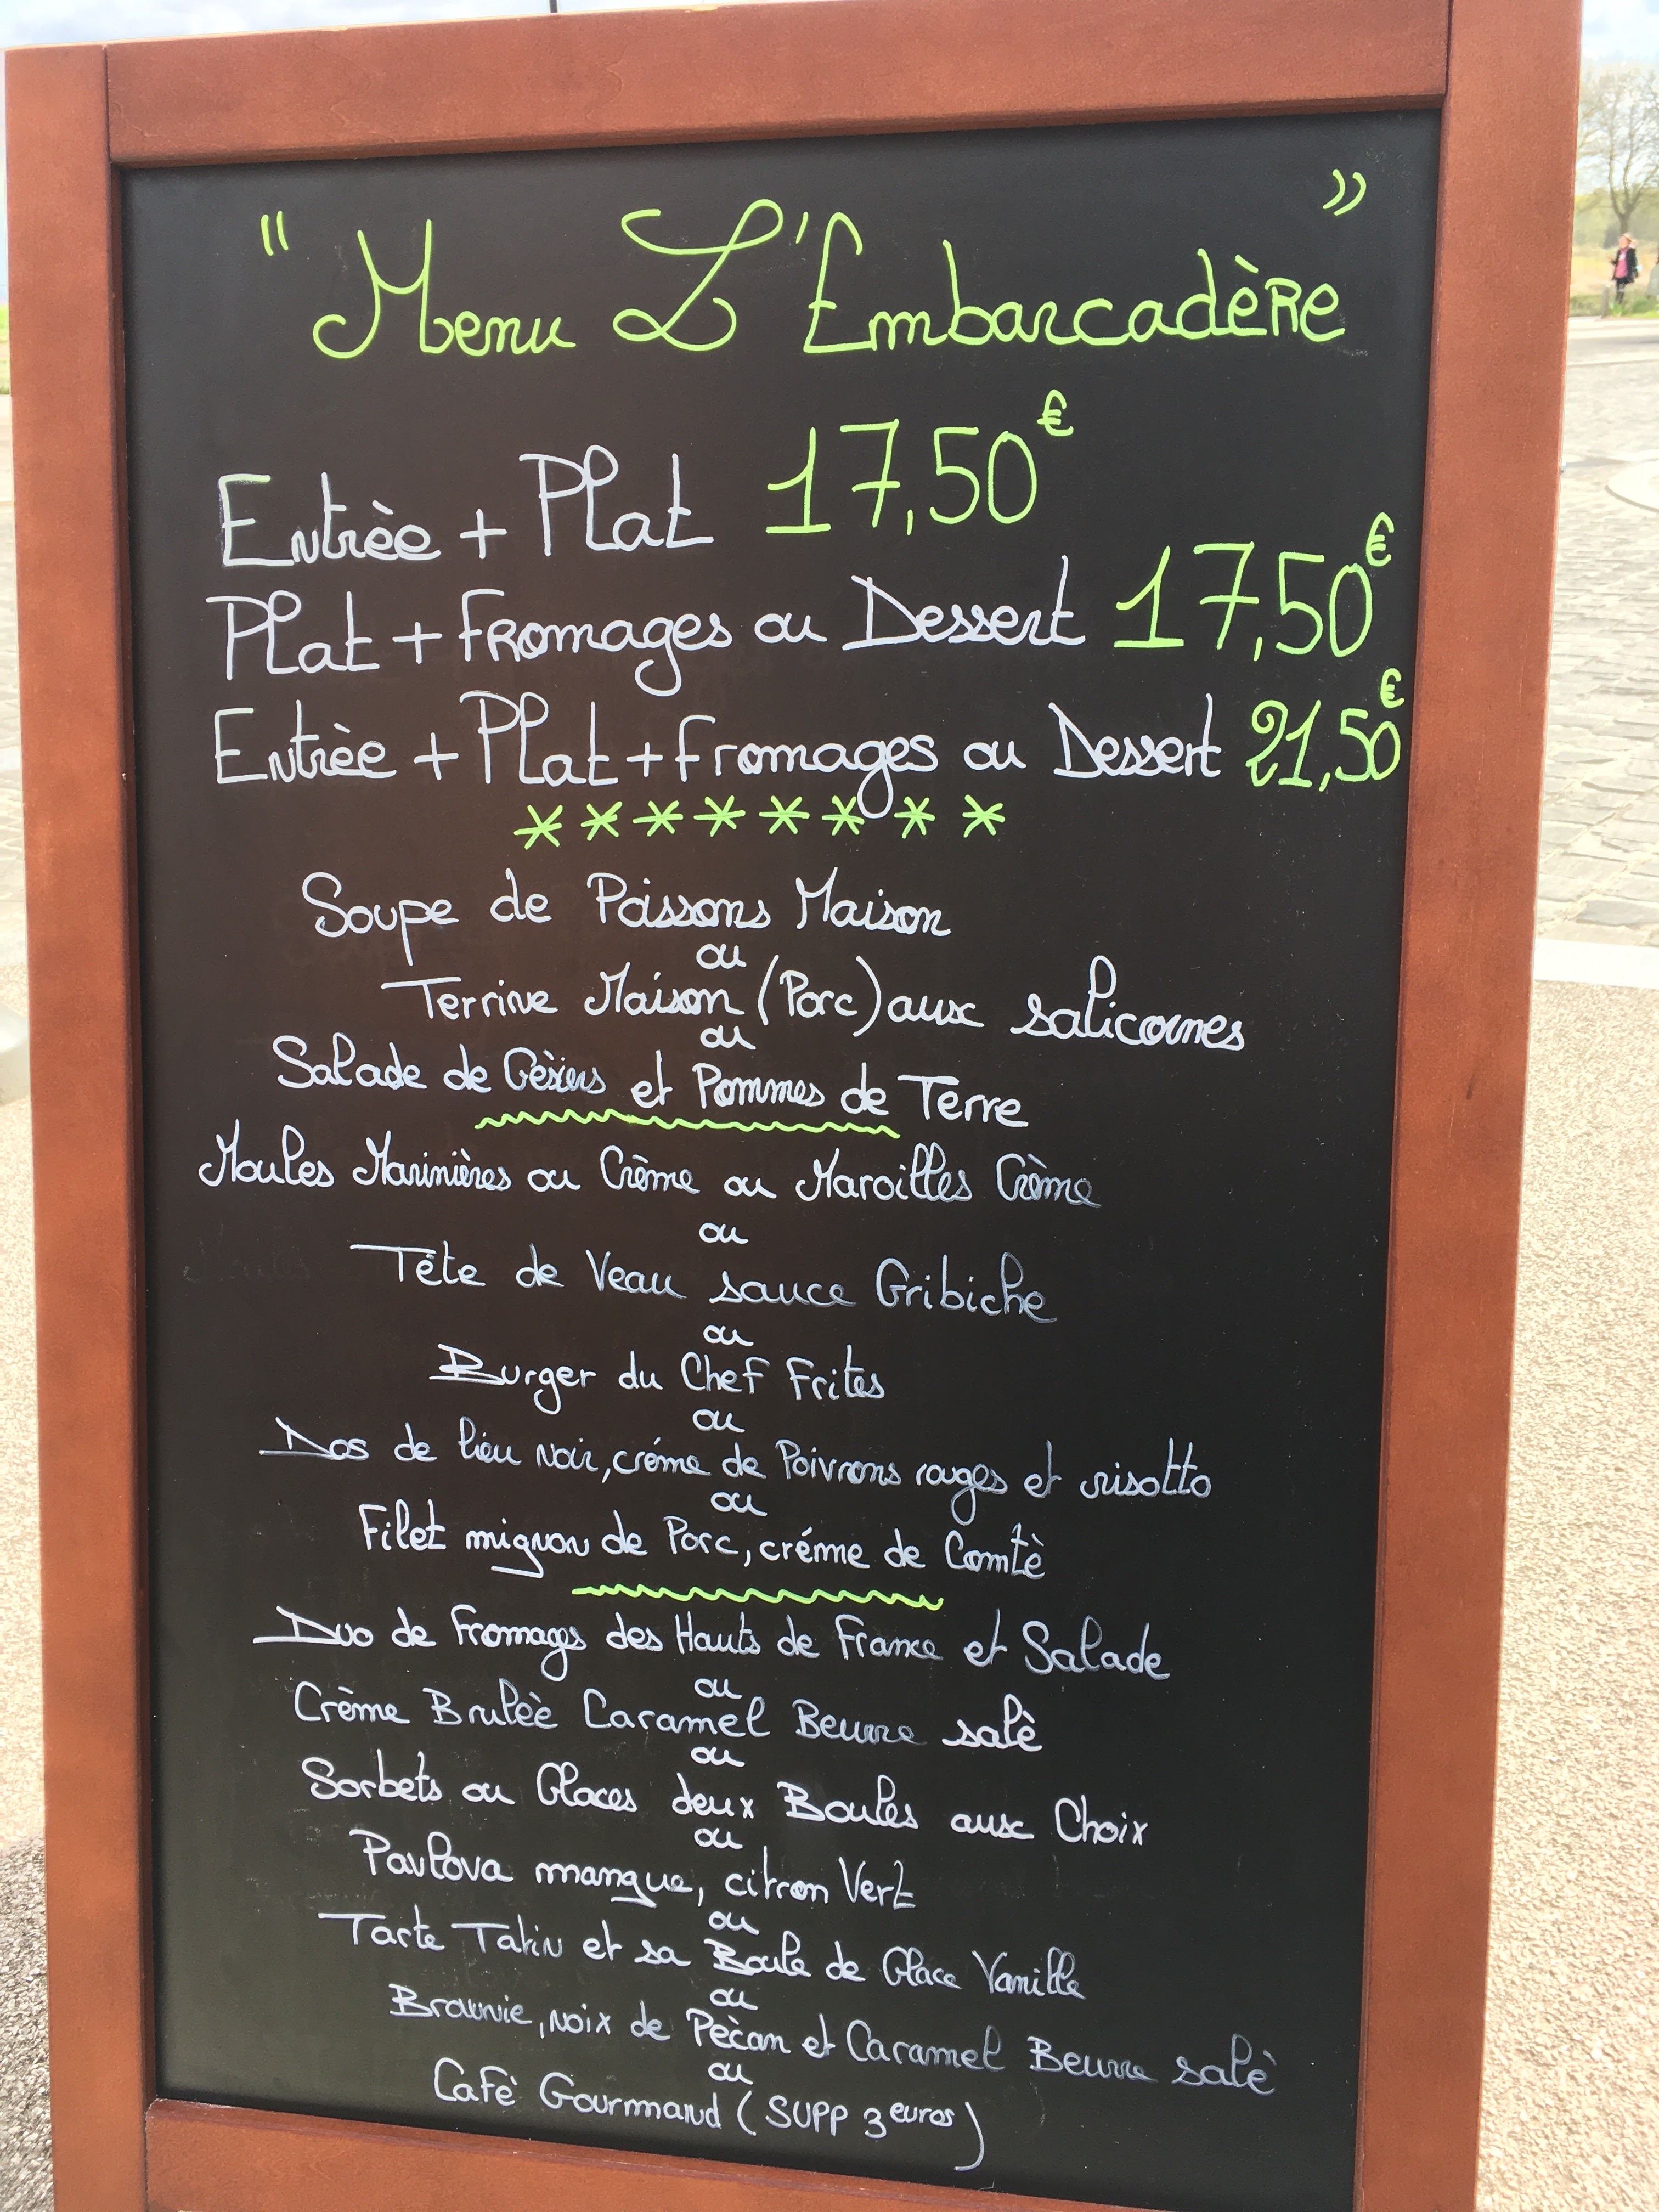 " Menu L'Embarcadère "
Entrèe + Plat 17,50€
Plat + Fromages ou Dessert 17,50€
Entrèe + Plat + Fromages ou Dessert 21,50€
********
Soupe de Poissons Maison
ou
Terrine Maison (Porc) aux salicornes
ou
Salade de Gèsiers et Pommes de Terre
Moules Marinières ou Crème ou Maroilles Crème
ou
Tête de Veau sauce Gribiche
ou
Burger du Chef Frites
ou
Dos de lieu noir, créme de Poivrons rouges et risotto
ou
Filet mignon de Porc, créme de Comtè
Duo de Fromages des Hauts de France et Salade
ou
Crème Brulèè Caramel Beurre salè
ou
Sorbets ou Glaces deux Boules aux Choix
ou
Pavlova mangue, citron Vert
ou
Tarte Tatin et sa Boule de Glace Vanille
ou
Brownie, noix de Pècan et Caramel Beurre salè
ou
Cafè Gourmand (SUPP 3 euros)